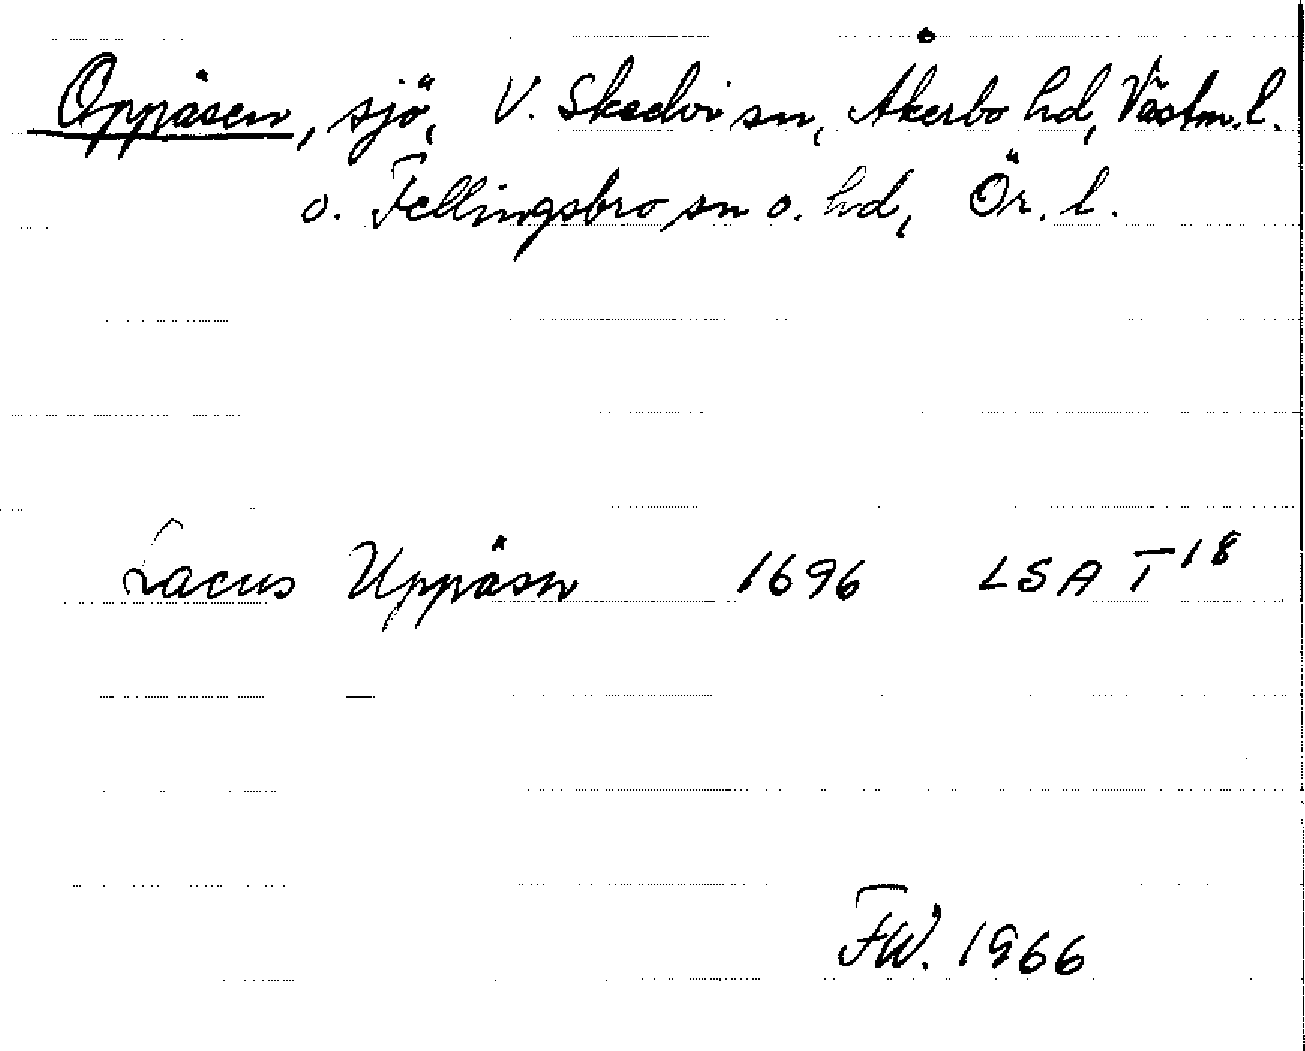 Oppåsen, sjö, V. Skedvi sn, Åkerbo hd, Västm. l.
o. Fellingsbro sn o. hd, Ör. l.
Lacus Uppåsn 1696 LSA T 18
FW. 1966